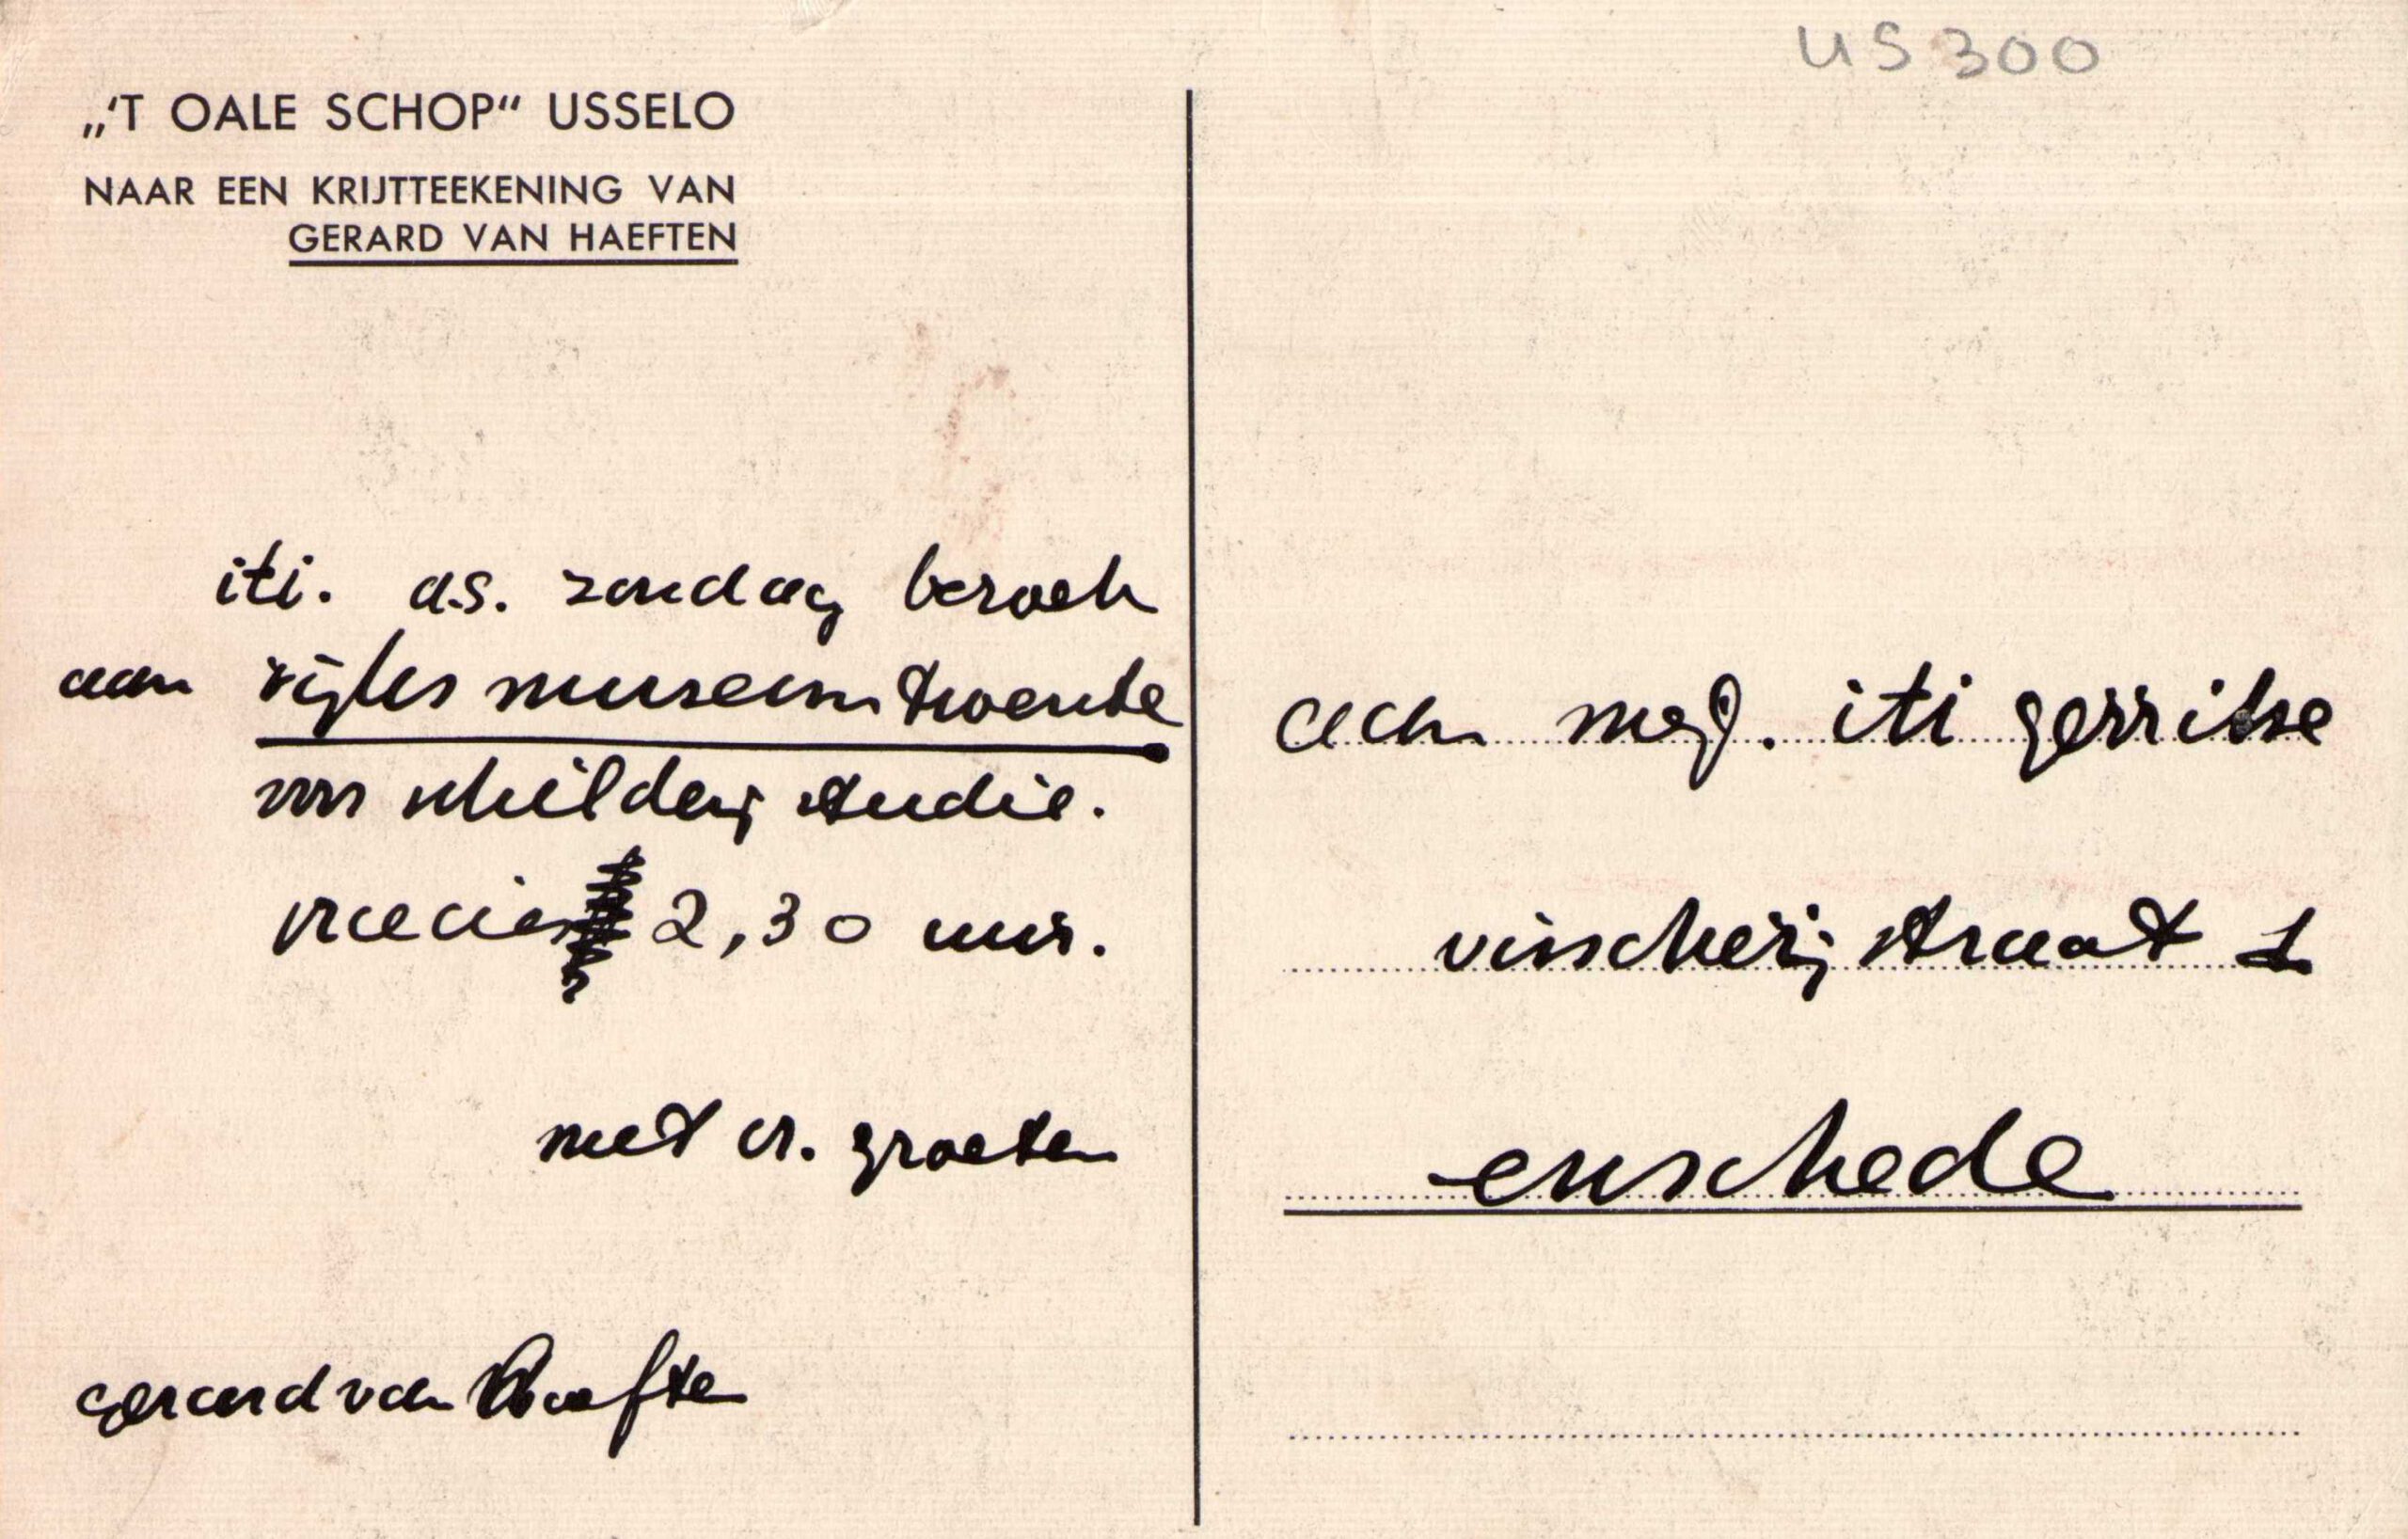 „'T OALE SCHOP“ USSELO
NAAR EEN KRIJTTEEKENING VAN
GERARD VAN HAEFTEN
iti. a.s. zondag bezoek
aan rijksmuseum twente
voor schilderij studie.
precies 2,30 uur.
met vr. groeten
gerard van Haeften
US 300
aan mej. iti gerritse
visscherij straat 1
enschede